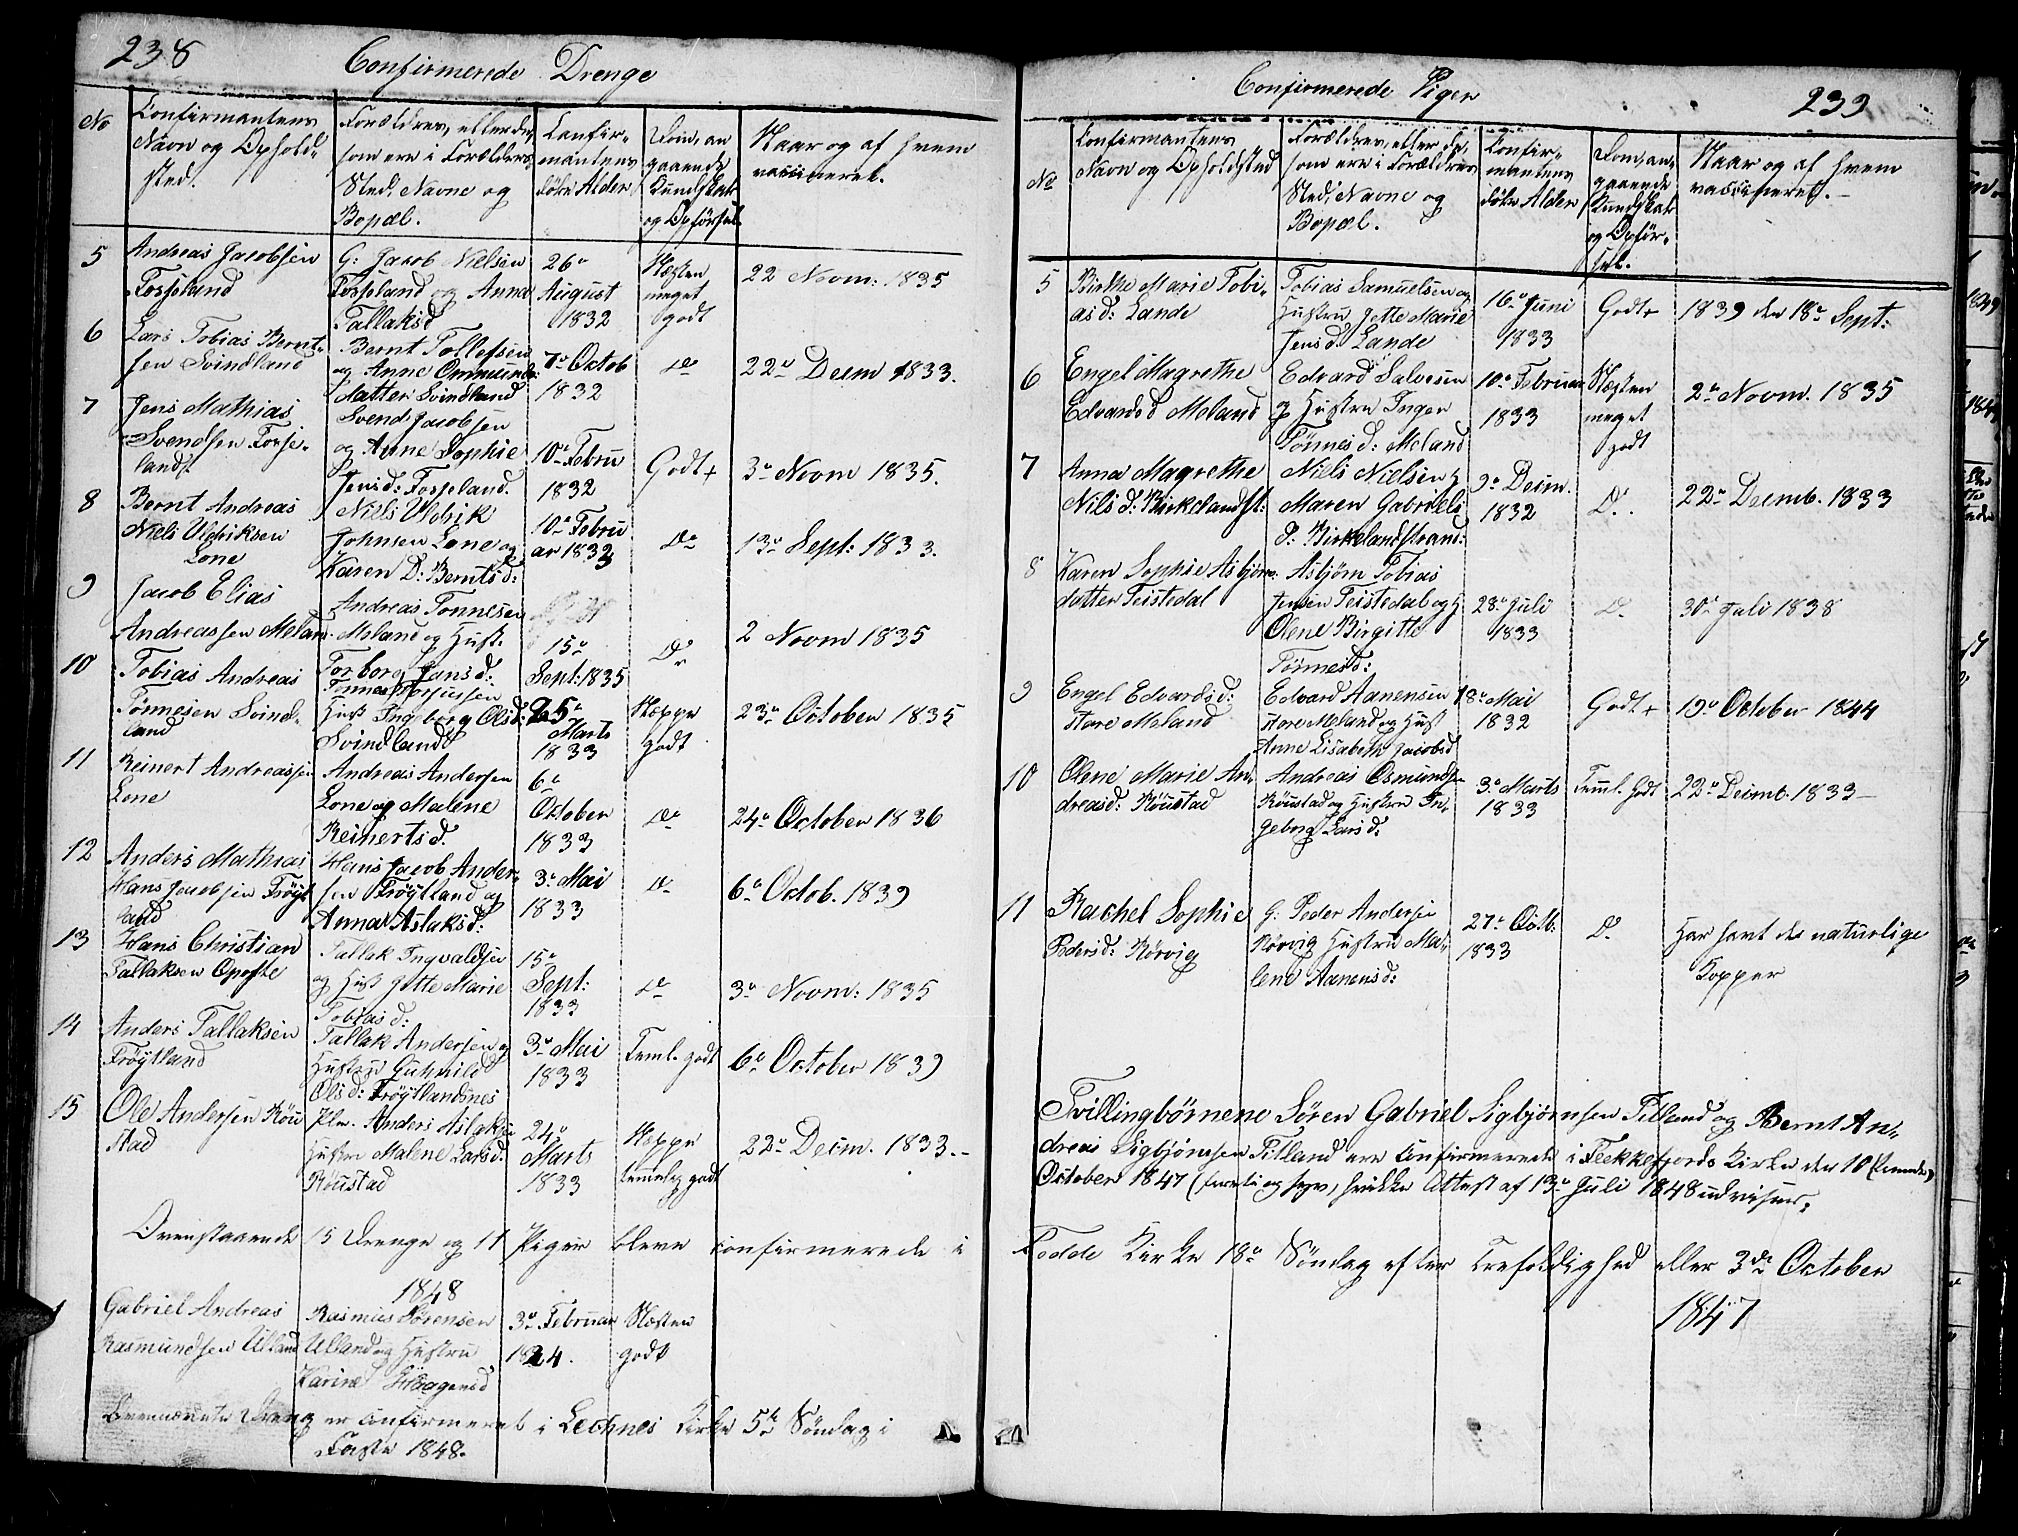 238
Confirmerede Drenge
No
Confirmantens
Navn og Ophold-
sted.
Forældres, eller de,
som ere i Forældres
Sted, Navne og
Bopæl.
Confir-
mantens
Alder
Dom, an
gaaende
Kundskab
og Opførsel
Naar og af hvem
vaccineret.
5
Andreas Jacobsen
Fosseland
G: Jacob Nielsen
Fosseland og Anna
Tallaksd
26de
August
1832
Næsten
meget
godt
22 Novm: 1835
6
Lars Tobias Bernt-
sen Svindland
Bernt Tollefsen
og Anne Ommunds
datter Svindland
7de Octob
1832
Do
22de Decm 1833.
7
Jens Mathias
Svendsen Fosse-
land
Svend Jacobsen
og Anne Sophie
Jensd: Fosseland.
10de Febru
1832
Godt +
3de Novm 1835.
8
Bernt Andreas
Niels Uldriksen
Lone
Niels Uldrik
Johnsen Lone og
Karen D: Berntsd:
10de Febru
ar 1832
Do
13de Sept: 1833.
9
Jacob Elias
Andreassen Meland
Andreas Tønnesen
Meland og Hust.
Torborg Jansd:
15de
Sept: 1835
Do
2 Novm 1835
10
Tobias Andreas
Tønnesen Svind-
land
Hust Ingeborg Olsd:
Svindland
25de
Marts
1833
Næppe
godt
23de October 1835
11
Reinert Andreassen
Lone
Andreas Andersen
Lone og Malene
Reinertsd.
6de
October
1833
Do
24de October 1836
12
Anders Mathias
Hans Jacobsen Frøyt
land
Hans Jacob Ander-
sen Frøytland og
Anna Aslaksd:
3de Mai
1833
Do
6de Octob. 1839
13
Hans Christian
Tallaksen Opofte
Tallak Ingvaldsen
og Hust Jette Marie
Tobiasd:
15de
Sept:
1833
Do
3de Novm: 1835
14
Anders Tallaksen
Frøytland
Tallak Andersen og
Hustru Guhnild
Olsd: Frøytlandsnes
3de Mai
1833
Teml. godt
6de October 1839
15
Ole Andersen Røu
stad
Plm. Anders Aslaksen
Hustru Malene Larsd.
Røustad
24de
Marts
1833
Næppe
temelig godt
22de Decm. 1833.-
Ovenstaaende 15 Drenge og 11 Piger bleve confirmerede i
1848
1
Gabriel Andreas
Rasmundsen Ulland
Rasmus Sørensen
Ulland og Hustru
Karine Haagensd
3de Februar
1824.
Næsten
godt
Dreng er confirmeret i Lechnes Kirke 5te Søndag i
Faste 1848.
Confirmerede Piger
239
No
Confirmantens
Navn og Opholdsted
Forældres, eller de,
som ere i Forældres
Sted, Navne og
Bopæl.
Confir-
mantens
Alder
Dom, an-
gaaende
Kundskab
og Opfør-
sel.
Naar og af hvem
vaccineret.
5
Birthe Marie Tobi-
asd: Lande
Tobias Samuelsen og
Hustru Jette Marie
Jensd: Lande
16de Juni
1833
Godt +
1839 den 18de Sept:
6
Engel Magrethe
Edvardsd Meland
Edvard Salvesen
og Hustru Inger
Tønnesd: Meland
10de Februar
1833
Næsten
meget
godt
2de Novm. 1835
7
Anna Magrethe
Nilsd: Birkelandst:
Niels Nielsen og
Maren Gabriels
D: Birkelandstrand:
9de Decm.
1832
Do.
22de Decmb. 1833
8
Karen Sophie Asbjørn-
datter Teistedal
Asbjørn Tobias
Jensen Teistedal og H
Olene Birgitte
Tønnesd:
28de Juli
1833
Do
30de Juli 1838
9
Engel Edvardsd:
store Meland
Edvard Aanensen
store Meland og Hust
Anne Lisabeth Jacobsd
18de Mai
1832
Godt +
19de October 1844
10
Olene Marie An-
dreasd: Røustad
Andreas Osmundsen
Røustad og Hustru In-
geborg Larsd:
3de Marts
1833
Teml. Godt
22de Decmb. 1833
11
Rachel Sophie
Pedersd: Rørvig
G: Peder Andersen
Rørvig Hustru Ma-
lene Aanensd:
27de Octb:
1833
Do
Har havt de naturlige
Kopper
Tvillingbørnene Søren Gabriel Sigbjørnsen Tilland og Bernt An-
dreas Sigbjørnsen Tilland ere Confirmerede i Flekkefjords Kirke den 10
October 1847 hvilke Attest af 13de Juli 1848 udviser.
Fedde Kirke 18de Søndag efter Trefoldighed eller 3die October
1847